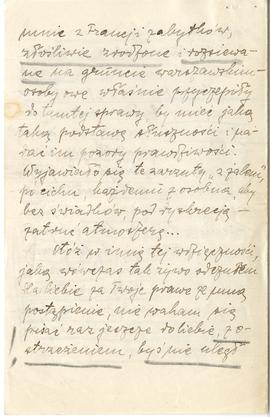 mnie z Francji zabytków,
złośliwie zrodzone i rozsiewa-
ne na gruncie warszawskim –
osoby owe właśnie przyczepiły
do tamtej sprawy by mieć jaką
taką podstawę słuszności i na-
dać im pozory prawdziwości.
Wyjawiało się te zarzuty „z żalem",
po cichu, każdemu z osobna, aby
bez świadków, pod dyskrecją –
zatruć atmosferę...
Otóż w imię tej wdzięczności,
jaką wówczas tak żywo odczułem
dla Ciebie za Twoje prawe ze mną
postąpienie, nie waham się
pisać raz jeszcze do Ciebie, z o-
strzeżeniem, byś nie uległ